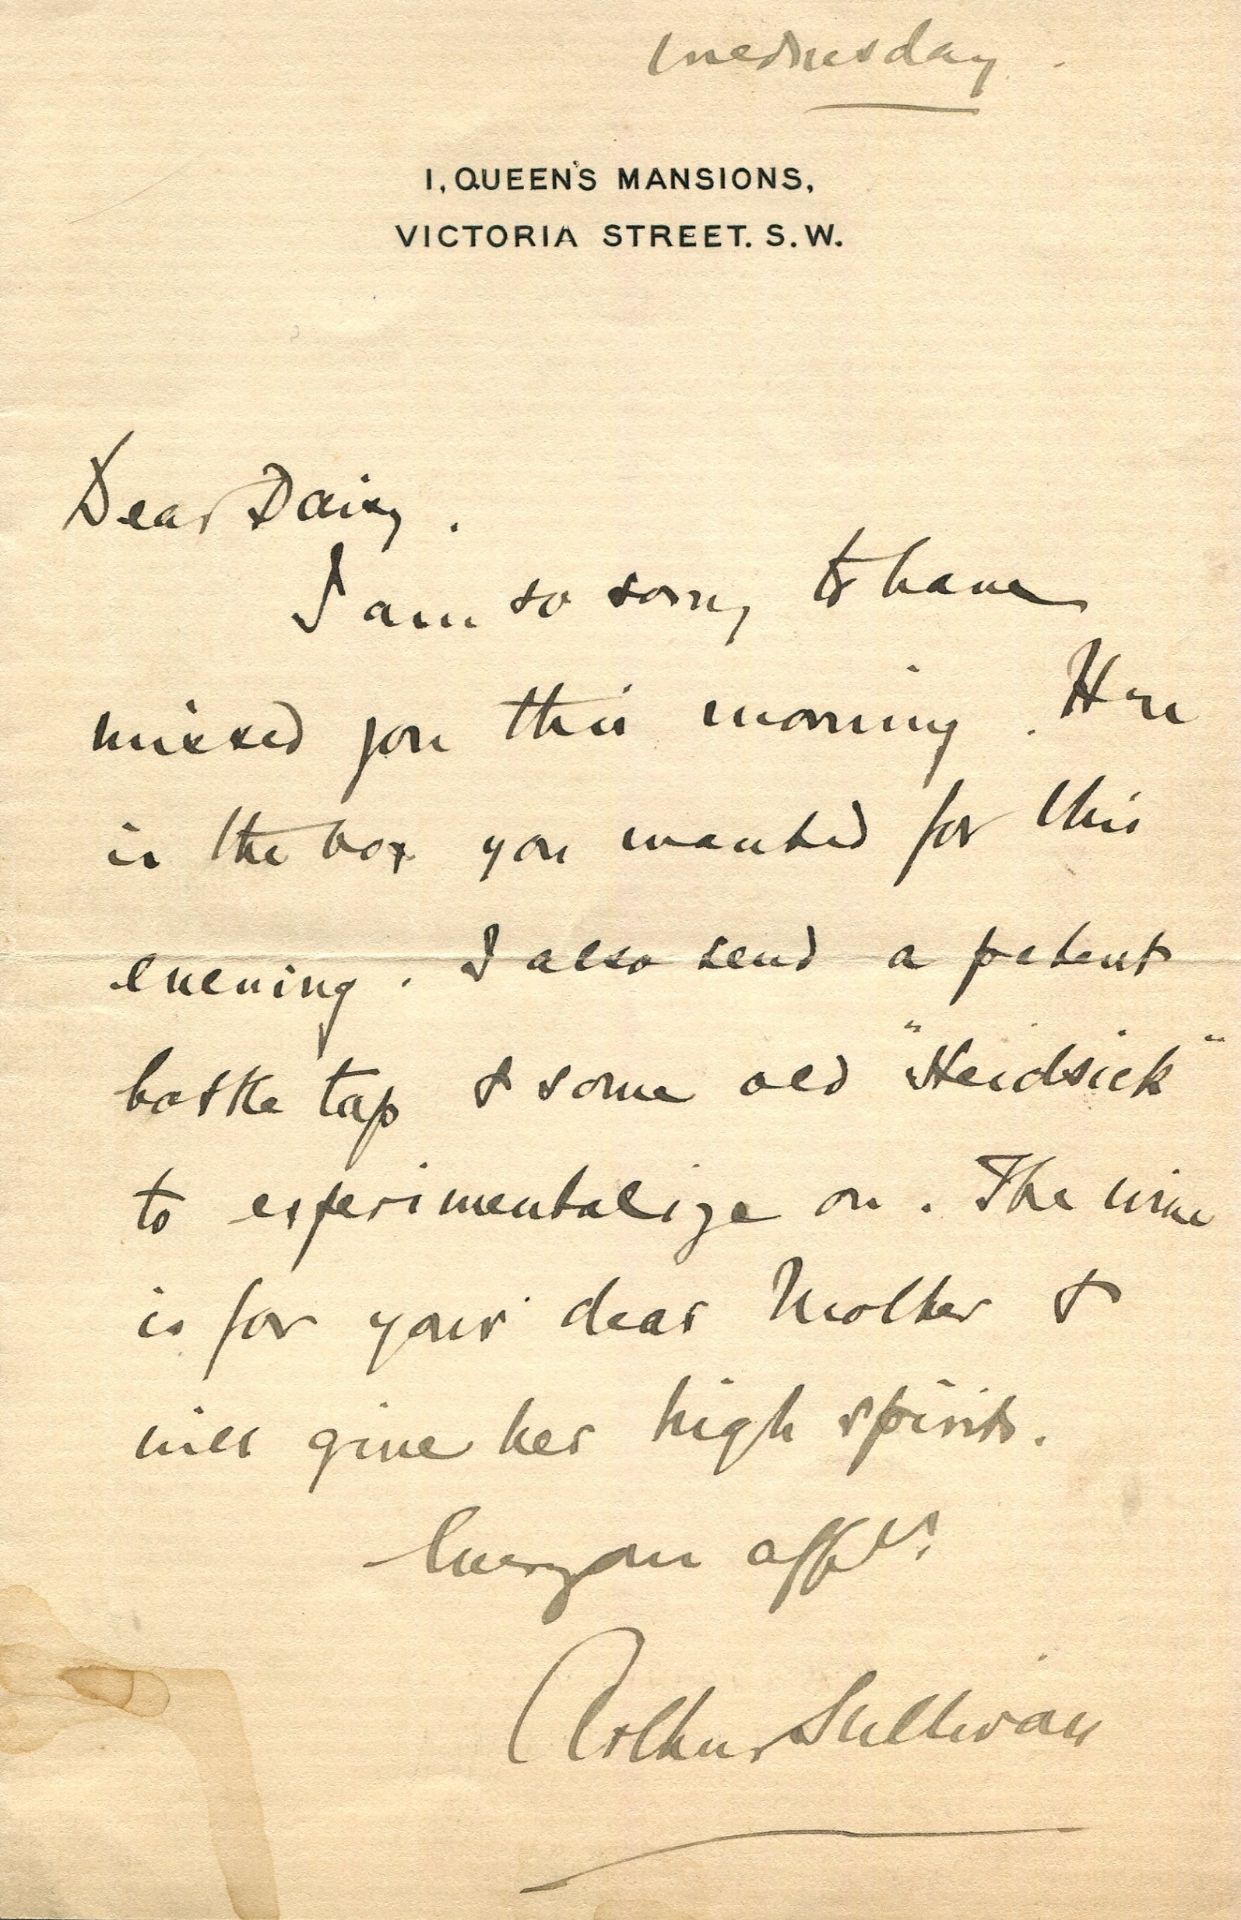 Wednesday.
1, QUEEN'S MANSIONS,
VICTORIA STREET. S.W.
Dear Daisy.
I am so sorry to have
missed you this morning. Here
is the box you wanted for this
evening. I also send a patent
bottle tap & some old "Heidsick"
to experimentalize on. The wine
is for your dear Mother &
will give her high spirits.
Ever yours affly.
Arthur Sullivan